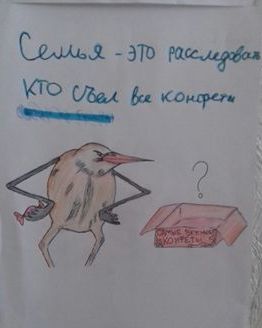 Семья - это расследовать
кто съел все конфеты
?
САМЫЕ ВКУСНЫЕ
КОНФЕТЫ